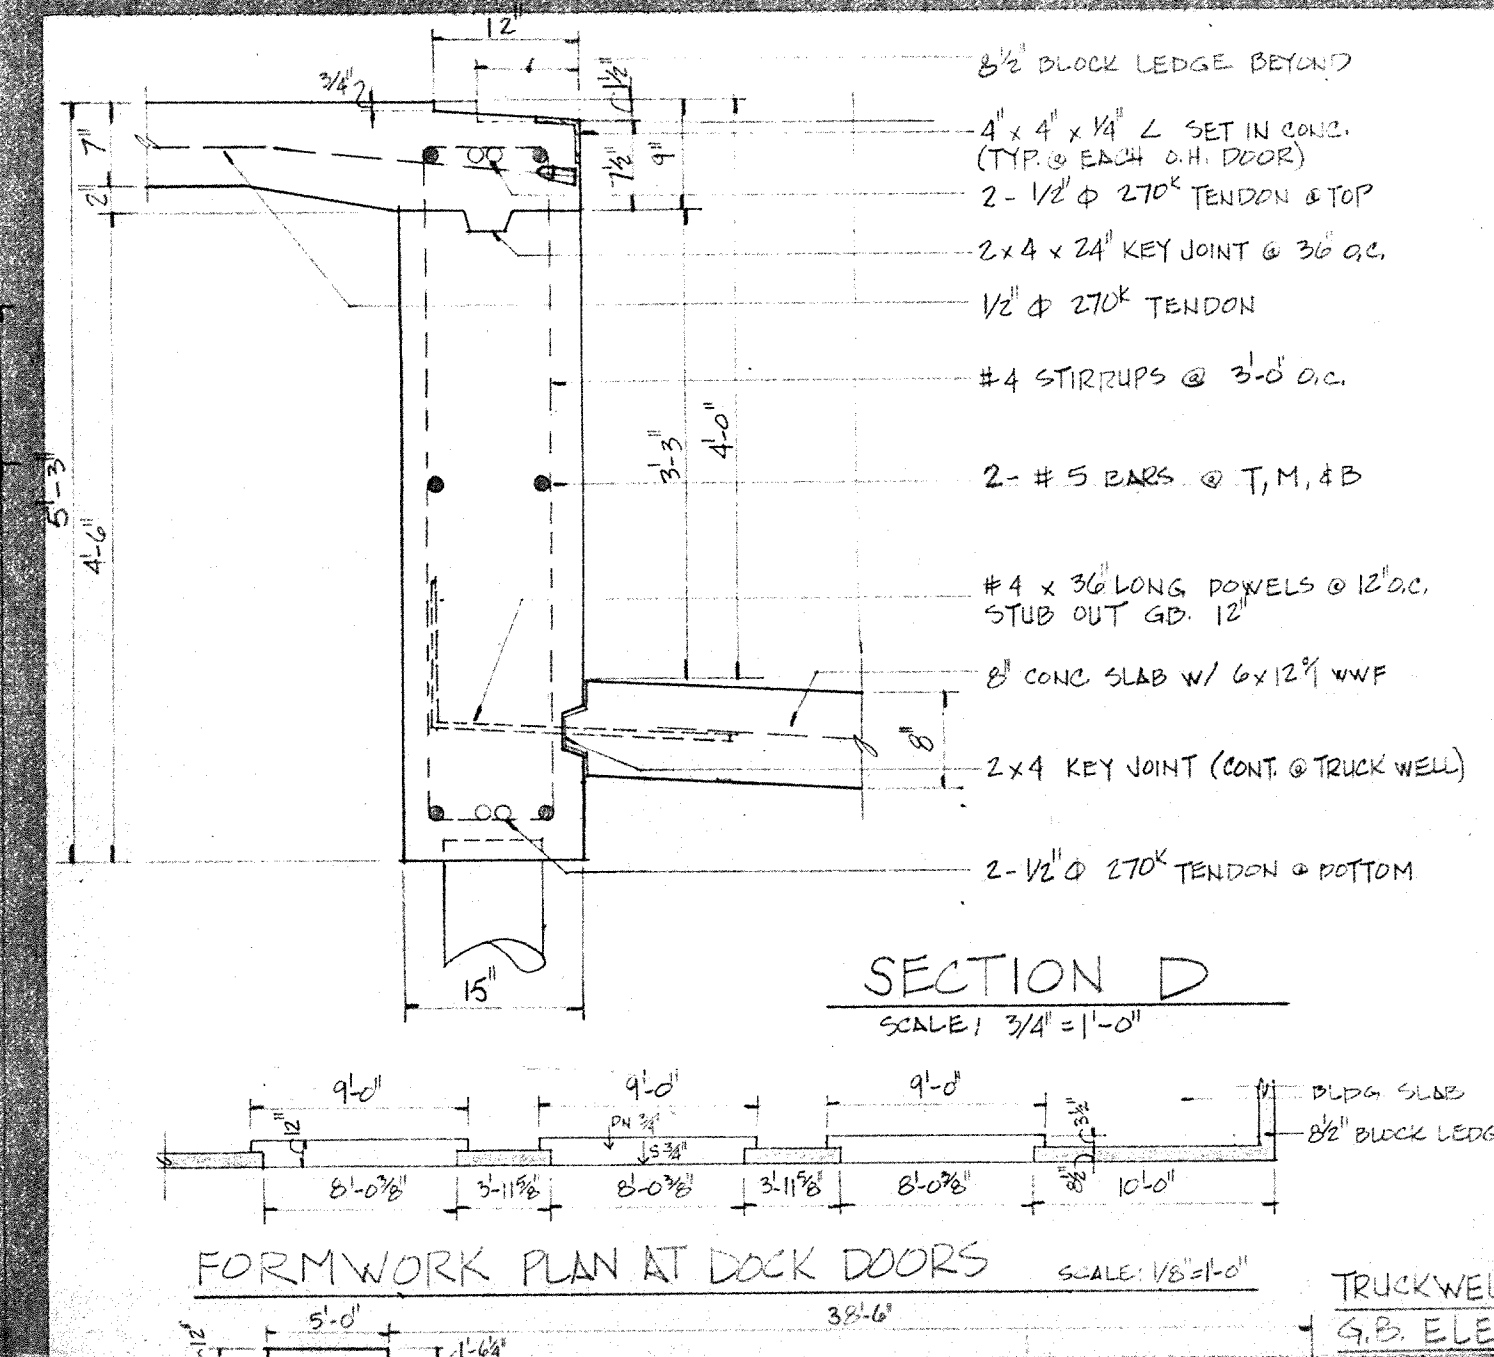 12"
3/4"
1½"
7"
2"
7½"
9"
5'-3"
4'-6"
3'-3"
4'-0"
8"
15"
8½" BLOCK LEDGE BEYOND
4" x 4" x ¼" ∠ SET IN CONC.
(TYP. @ EACH O.H. DOOR)
2- 1/2" Φ 270K TENDON @ TOP
2 x 4 x 24" KEY JOINT @ 36" O.C.
1/2" Φ 270K TENDON
#4 STIRRUPS @ 3'-0" O.C.
2- #5 BARS @ T, M, & B
#4 x 36" LONG DOWELS @ 12" O.C.
STUB OUT GB. 12"
8" CONC SLAB W/ 6x12 WWF
2x4 KEY JOINT (CONT. @ TRUCK WELL)
2- 1/2" Φ 270K TENDON @ BOTTOM
SECTION D
SCALE: 3/4" = 1'-0"
9'-0" 9'-0" 9'-0"
12" DN 3/4" S 3/4" 3½" 8½"
BLDG SLAB
8½" BLOCK LEDG
8'-0⅜" 3'-11⅝" 8'-0⅜" 3'-11⅝" 8'-0⅜" 10'-0"
FORMWORK PLAN AT DOCK DOORS SCALE: 1/8"=1'-0"
TRUCKWEL
G.B. ELE
5'-0" 38'-6"
12" 1'-6¼"